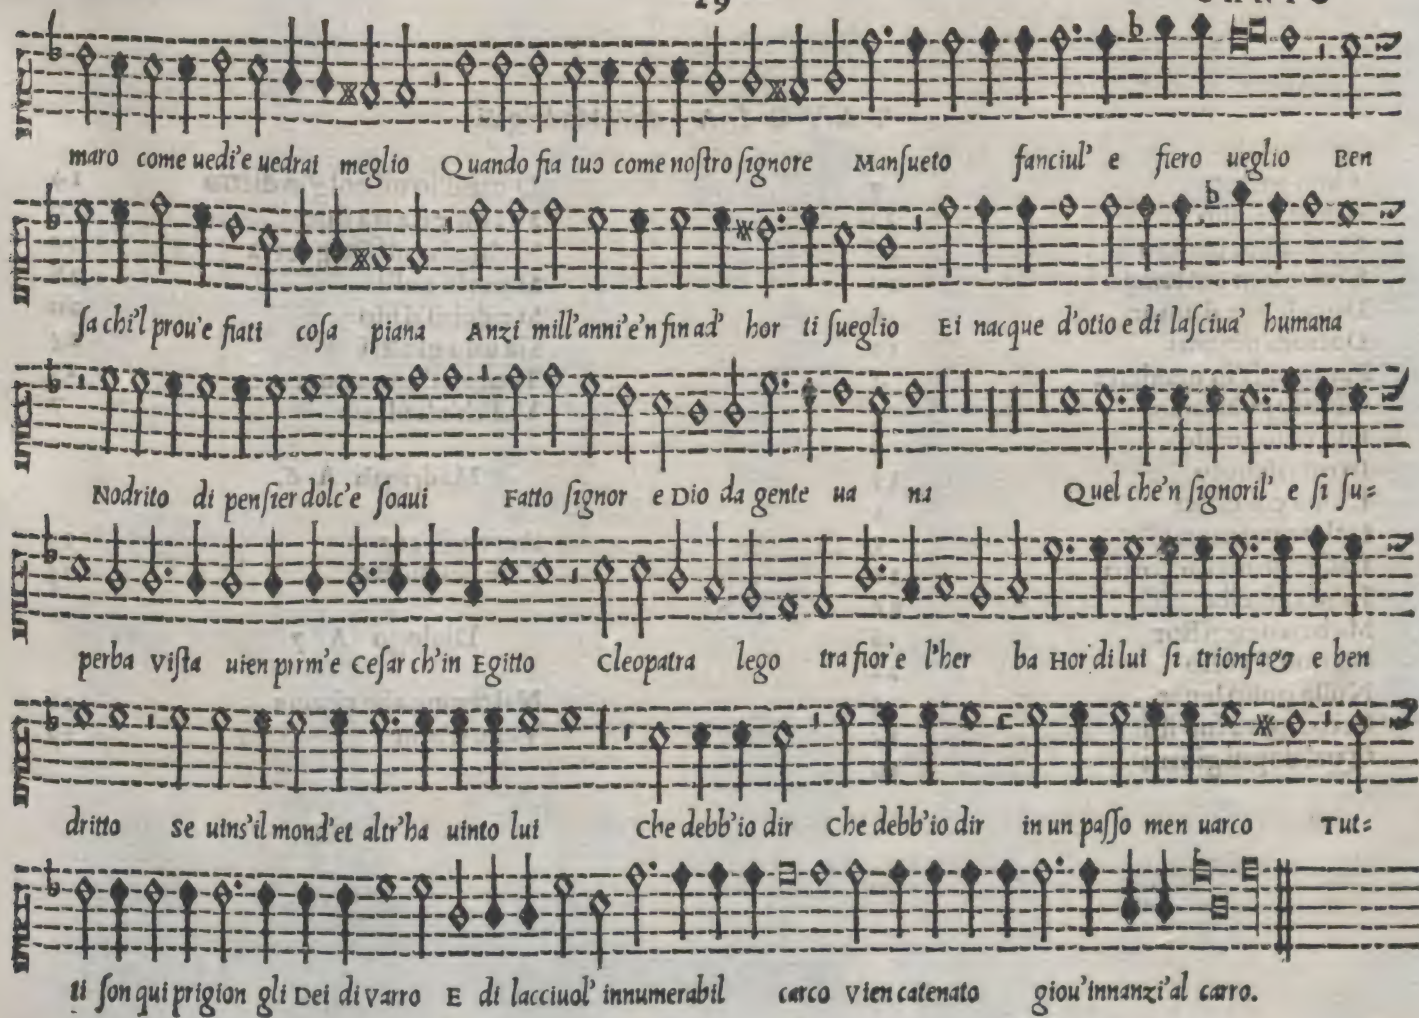 29 CANTO
maro come uedi'e uedrai meglio Quando fia tuo come noſtro ſignore Manſueto fanciul' e fiero ueglio Ben
ſa chi'l prou'e fiati coſa piana Anzi mill'anni'e'n fin ad' hor ti ſueglio Ei nacque d'otio e di laſciua' humana
Nodrito di penſier dolc'e ſoaui Fatto ſignor e Dio da gente ua na Quel che'n ſignoril' e ſi ſu=
perba Viſta uien pirm'e Ceſar ch'in Egitto Cleopatra lego tra fior'e l'her ba Hor di lui ſi trionfa & e ben
dritto Se uins'il mond'et altr'ha uinto lui Che debb'io dir Che debb'io dir in un paſſo men uarco Tut=
ti ſon qui prigion gli Dei di Varro E di lacciuol' innumerabil carco Vien catenato giou'innanzi'al carro.